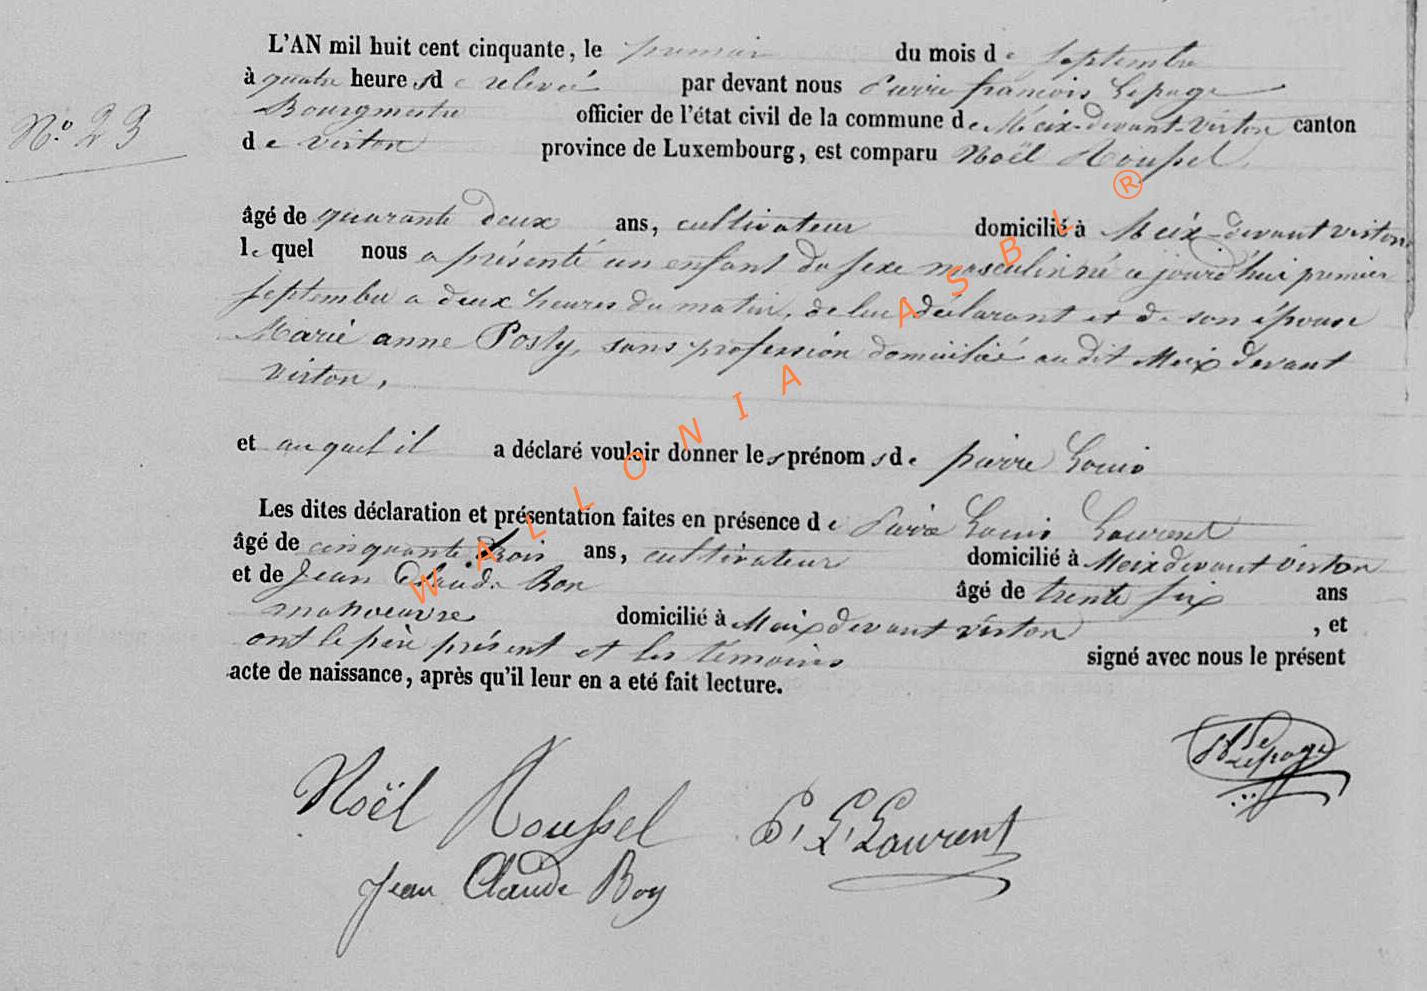 L'AN mil huit cent cinquante, le premier du mois de septembre
à quatre heures de relevée par devant nous Pierre françois Lepage
Bourgmestre officier de l'état civil de la commune de Meix-devant-Virton canton
N.º 23
de Virton province de Luxembourg, est comparu Noël Roussel
âgé de quarante deux ans, cultivateur domicilié à Meix-devant virton
lequel nous a présenté un enfant du sexe masculin né ce jourd'hui premier
septembre a deux heures du matin, de lui déclarant et de son épouse
Marie anne Posty, sans profession domiciliée au dit Meix devant
virton,
et auquel il a déclaré vouloir donner les prénoms de pierre Louis
Les dites déclaration et présentation faites en présence de Pierre Louis Laurent
âgé de cinquante trois ans, cultivateur domicilié à Meix devant virton
et de Jean Claude Bon âgé de trente six ans
manoeuvre domicilié à Meix devant virton , et
ont le père présent et les témoins signé avec nous le présent
acte de naissance, après qu'il leur en a eté fait lecture.
Lepage
Noël Roussel P. L. Laurent
Jean Claude Bon
WALLONIA ASBL ®